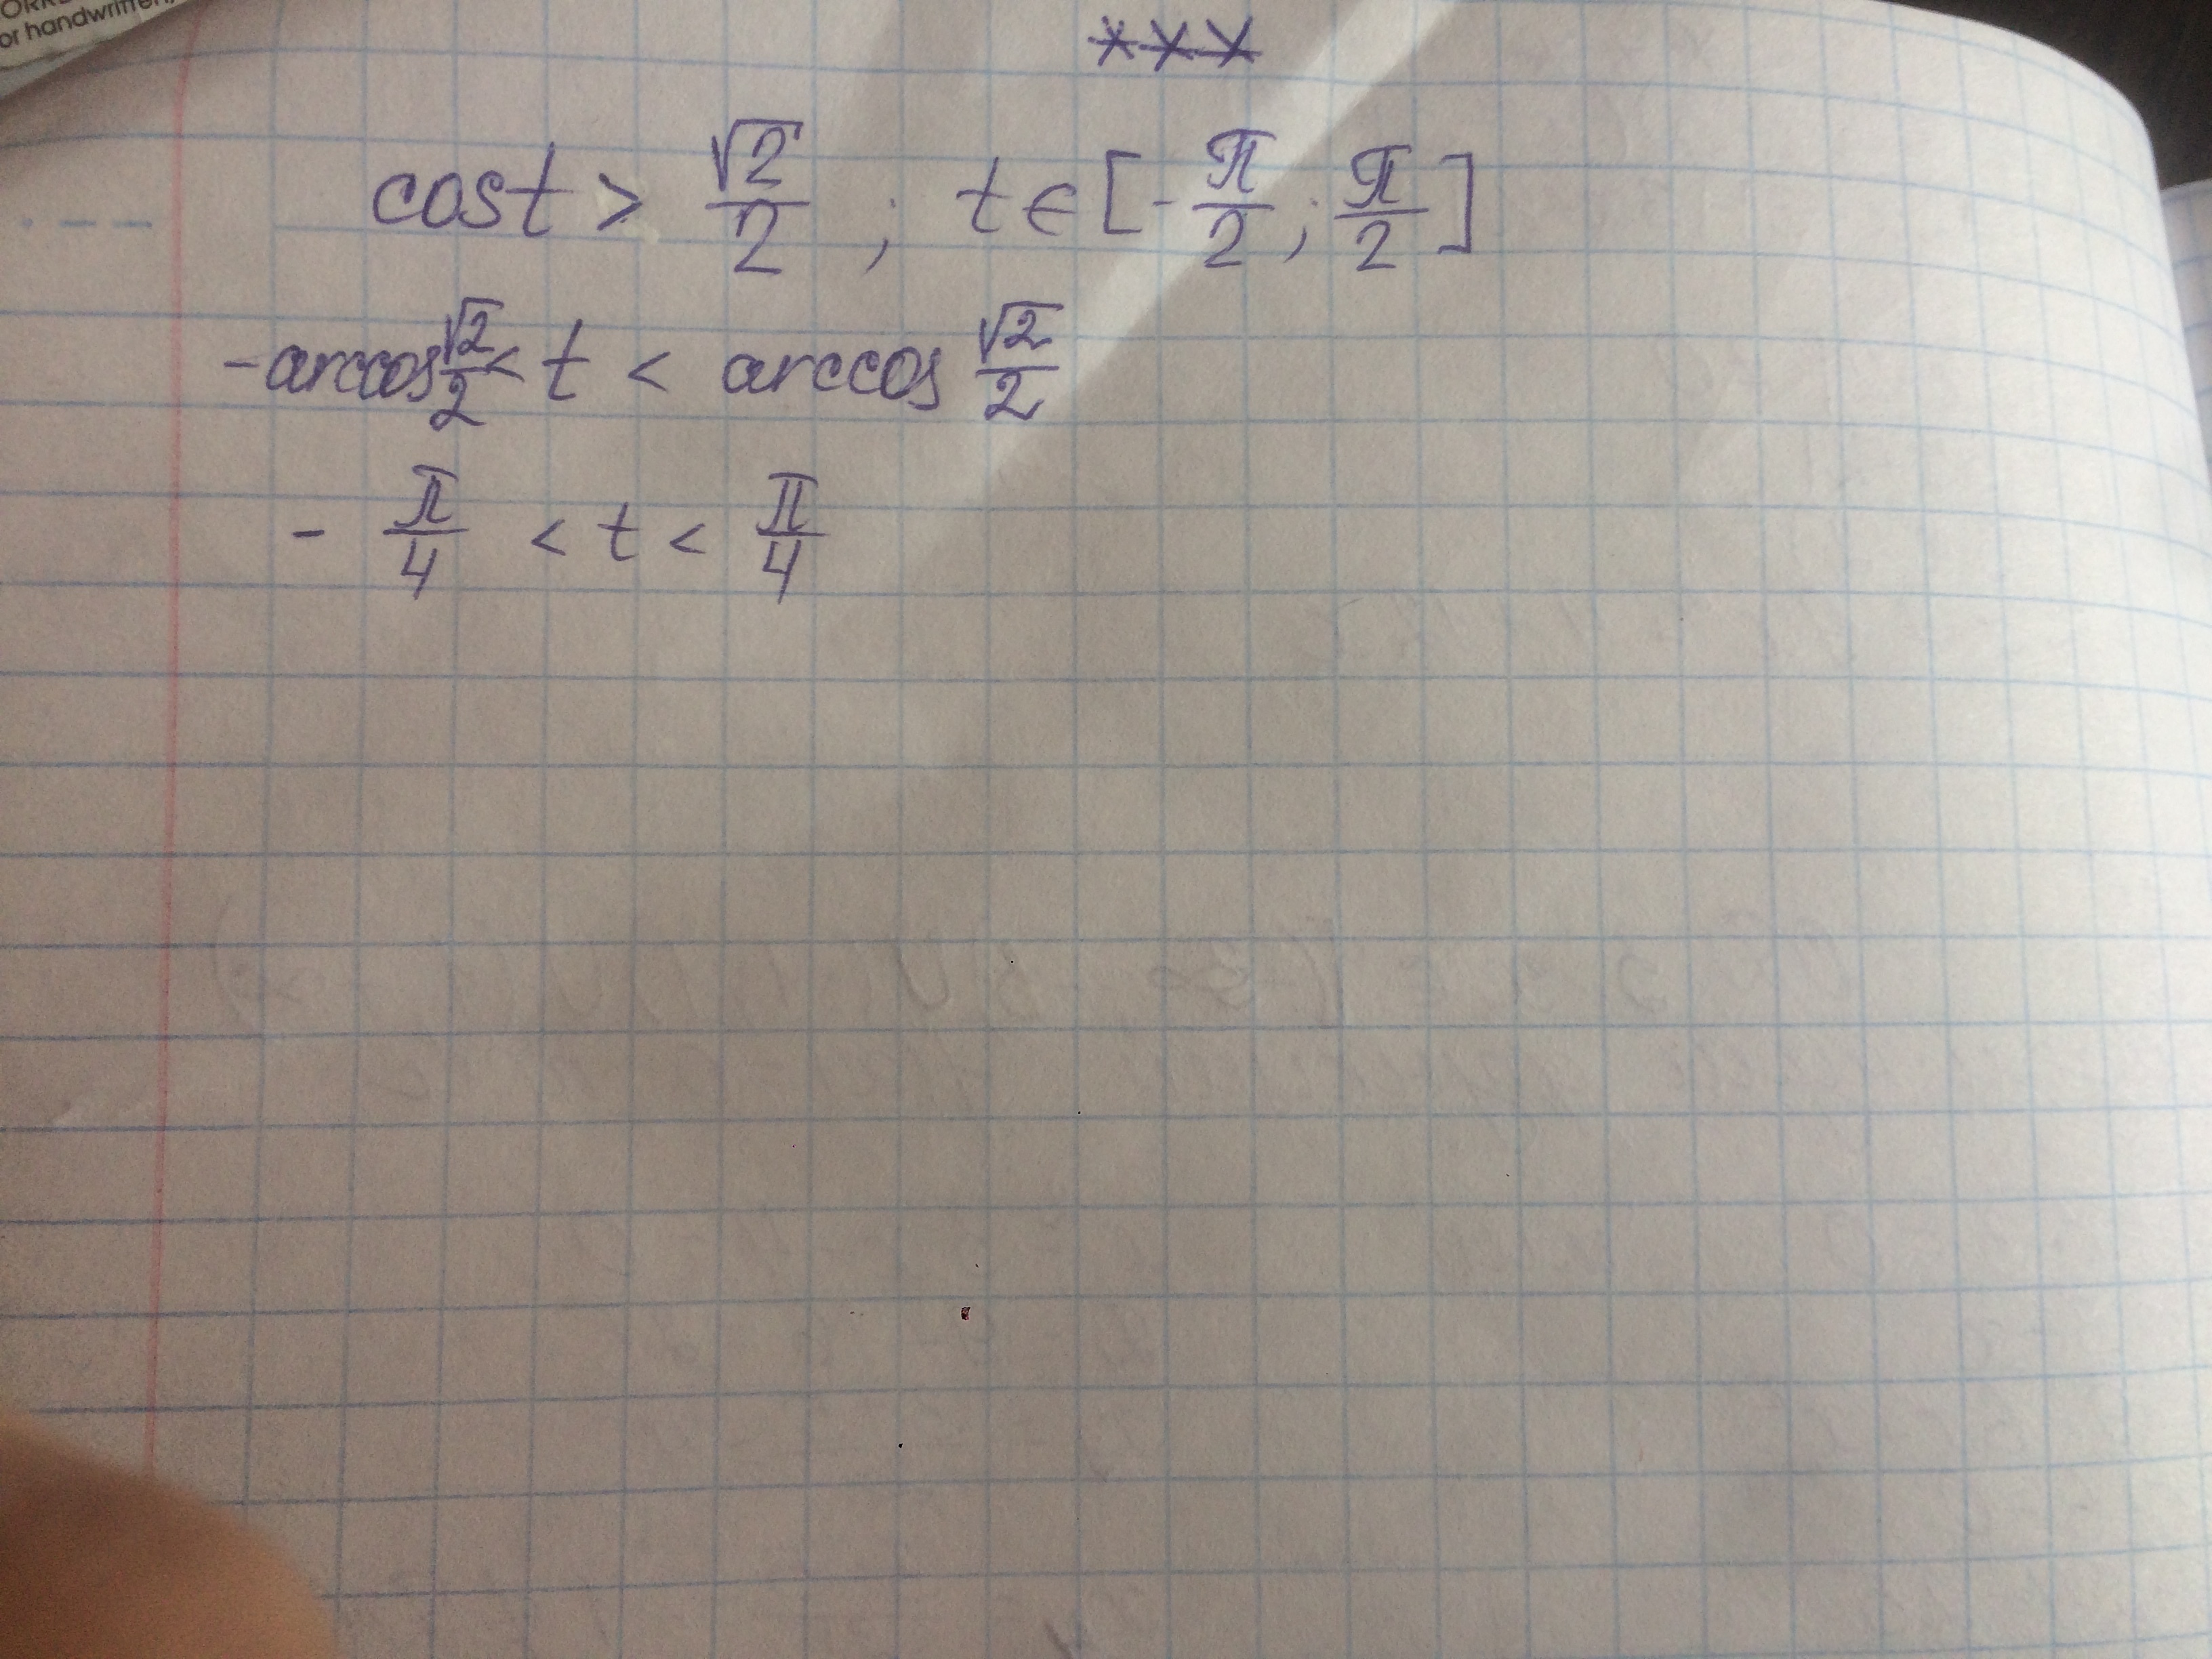 or handwritten,
***
cost > √2/2 ; t∈[-π/2; π/2]
-arccos √2/2 < t < arccos √2/2
- π/4 < t < π/4